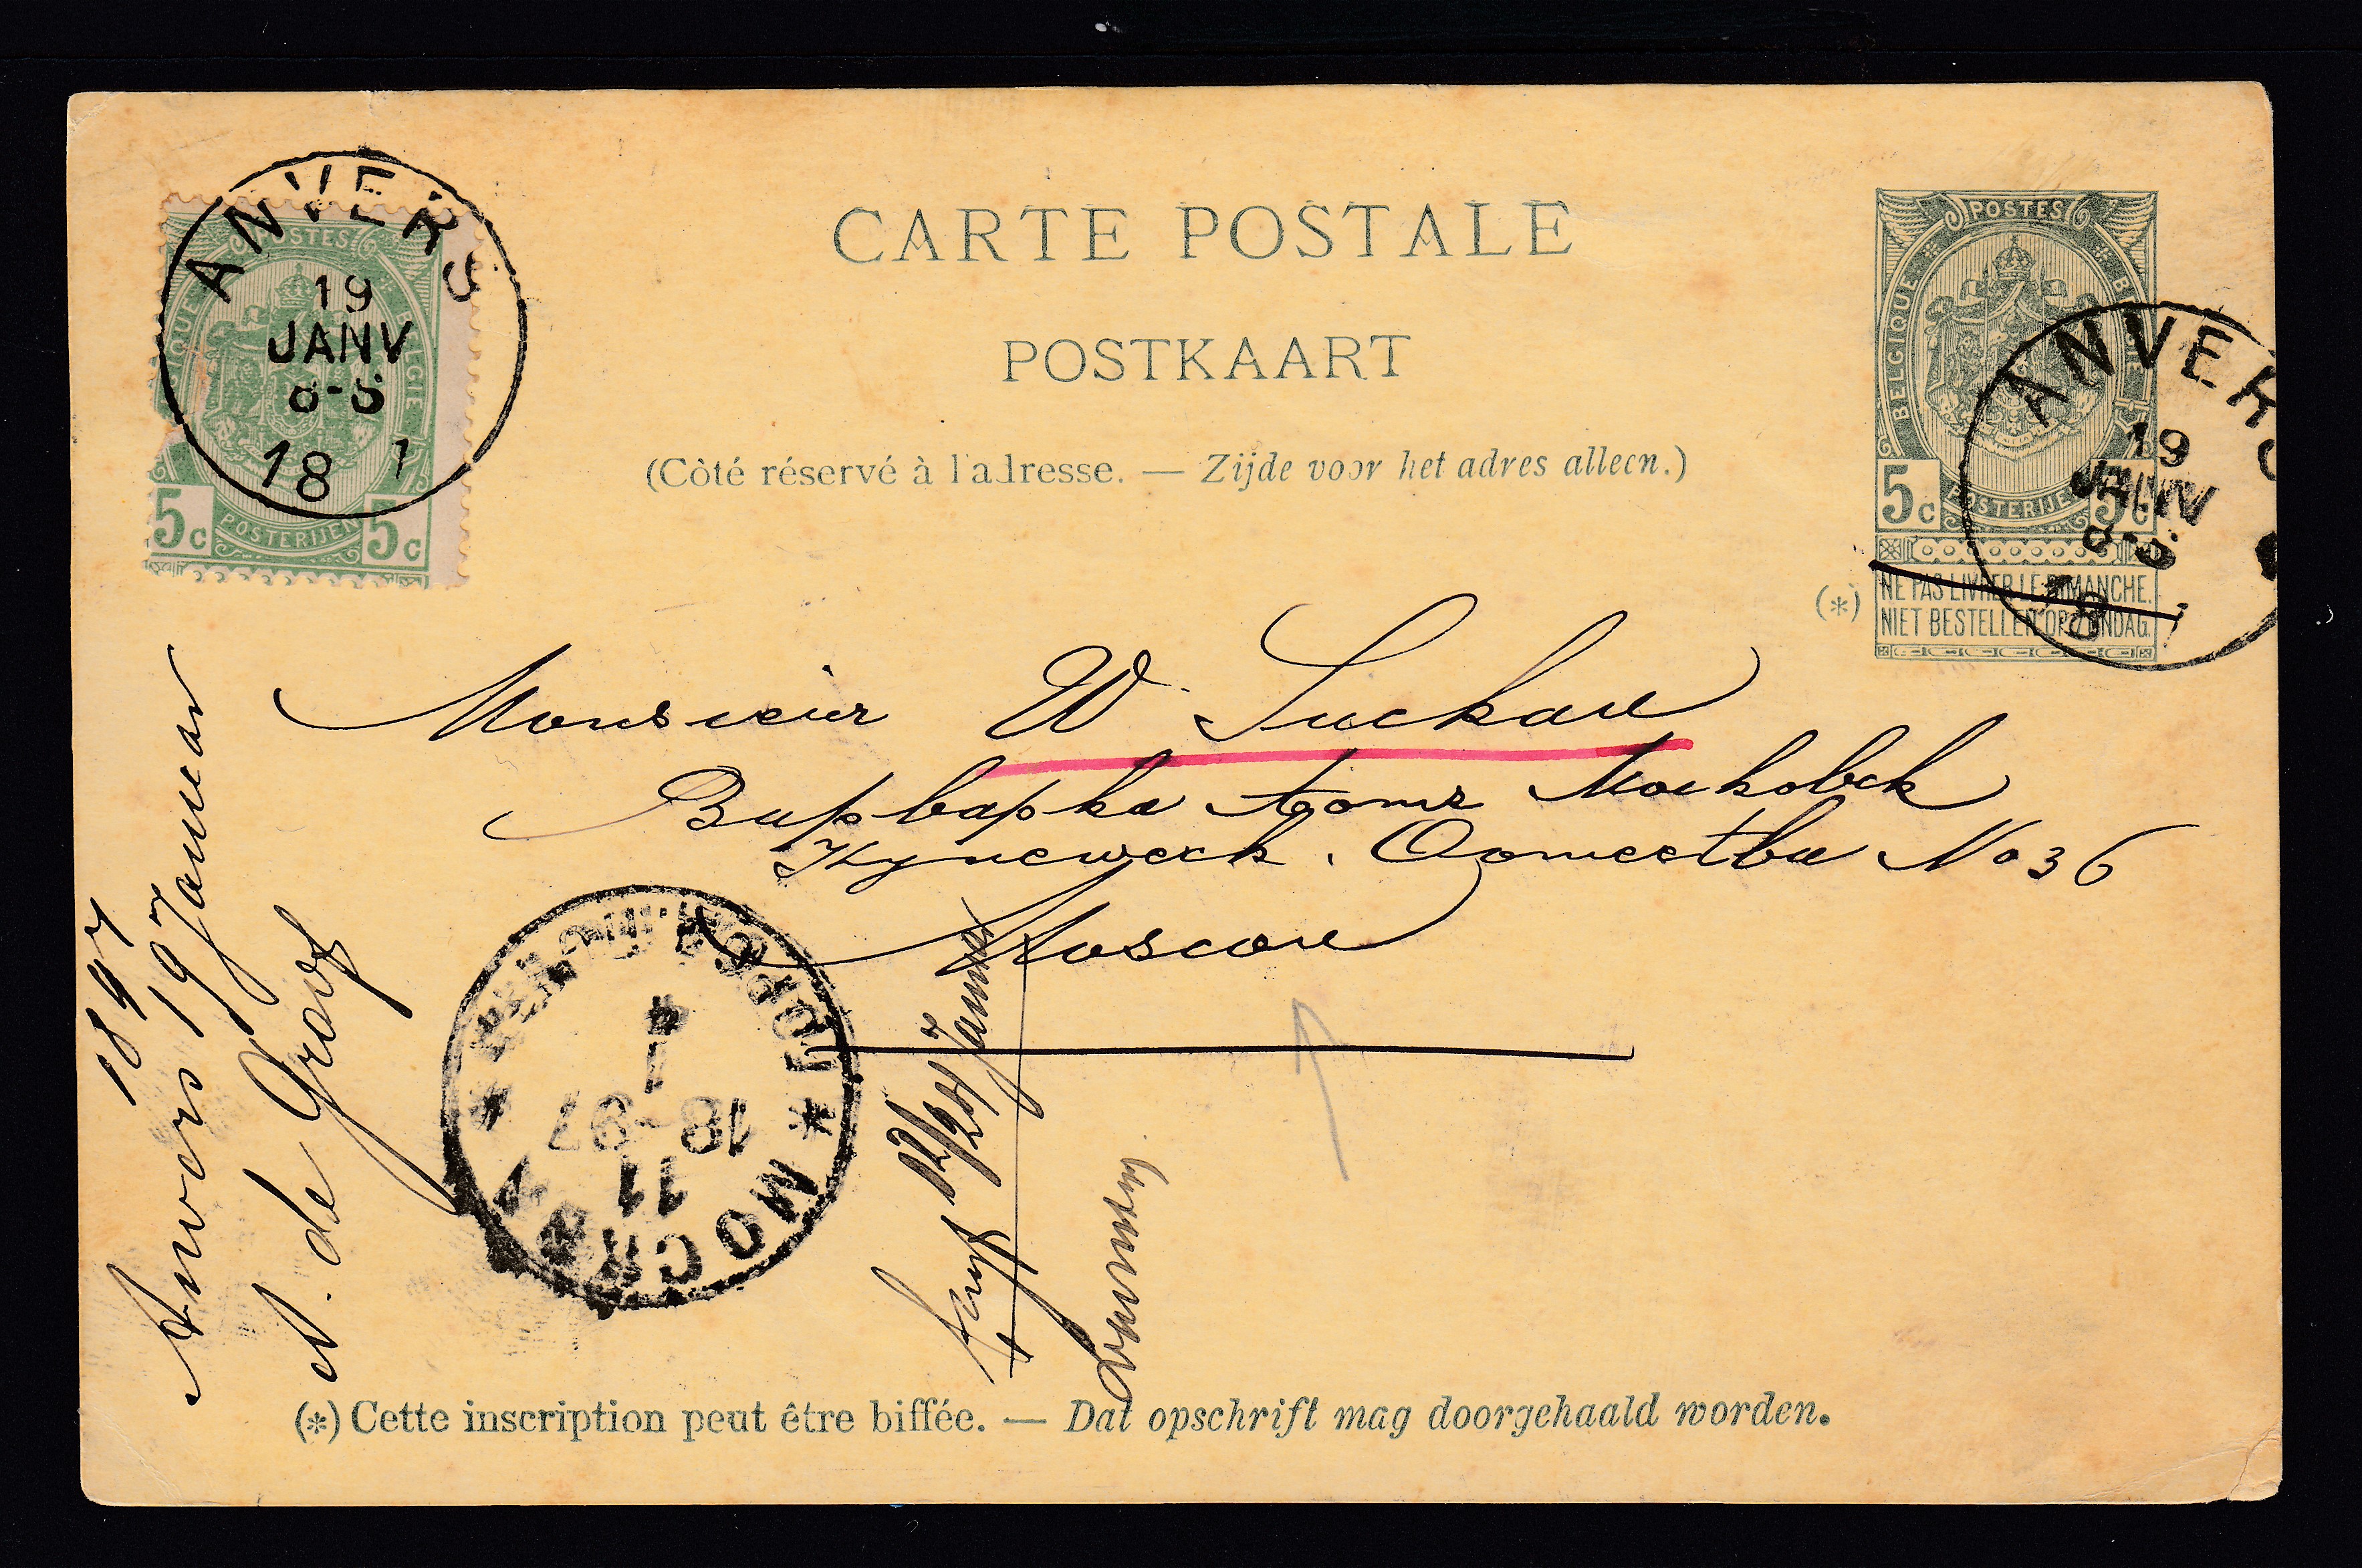 CARTE POSTALE
POSTKAART
(Côté réservé à l'adresse. — Zijde voor het adres alleen.)
ANVERS
19
JANV
8-S
18
1
POSTES
BELGIQUE
BELGIE
5c
POSTERIJEN
5c
POSTES
BELGIQUE
BELGIE
5c
POSTERIJEN
5c
ANVERS
19
JANV
8-S
18
(*)
NE PAS LIVRER LE DIMANCHE.
NIET BESTELLEN OP ZONDAG.
Monsieur W. Luckau
No 36
Moscou
1897
Anvers 19 Januar
de Graaf
МОСКВА
11
18-97
1
4
12/24 Januar
(*) Cette inscription peut être biffée. — Dat opschrift mag doorgehaald worden.